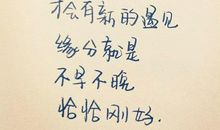 才会有新的遇见
缘分就是
不早不晚
恰恰刚好.